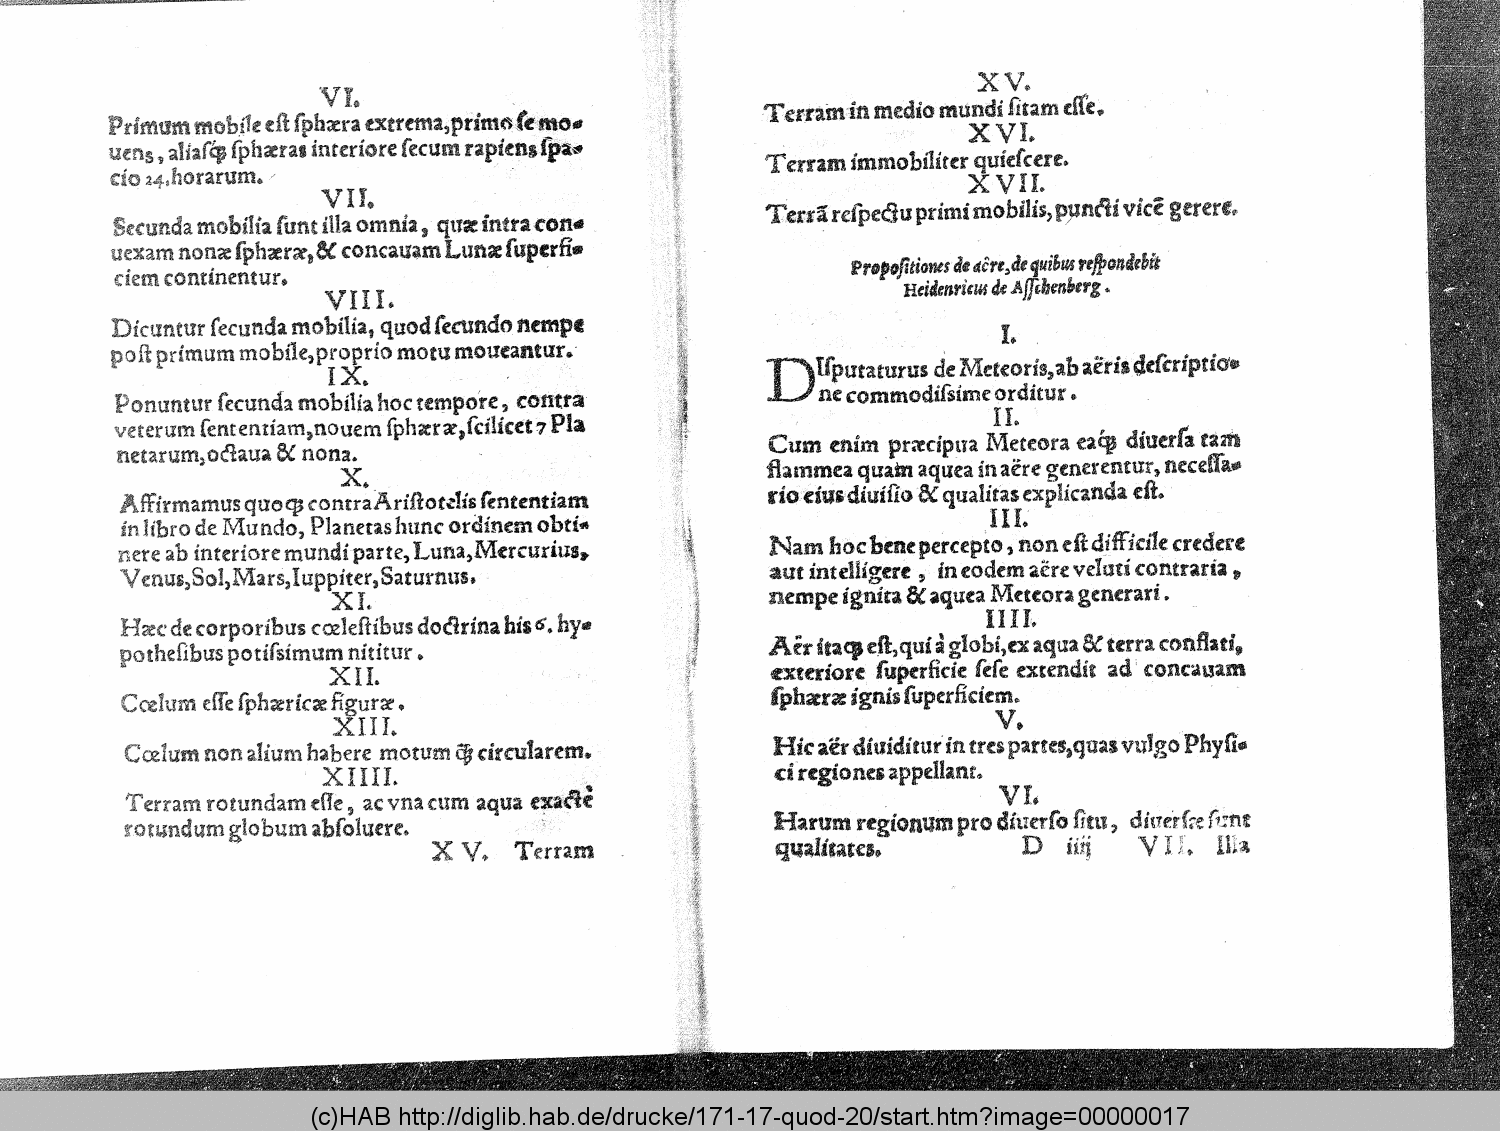 VI.
Primum mobile eſt ſphæra extrema,primo ſe mo-
uens, aliaſq́; ſphæras interiore ſecum rapiens ſpa-
cio 24.horarum.
VII.
Secunda mobilia ſunt illa omnia, quæ intra con-
uexam nonæ ſphæræ,& concauam Lunæ ſuperfi-
ciem continentur.
VIII.
Dicuntur ſecunda mobilia, quod ſecundo nempe
poſt primum mobile,proprio motu moueantur.
IX.
Ponuntur ſecunda mobilia hoc tempore, contra
veterum ſententiam,nouem ſphæræ,ſcilicet 7 Pla
netarum,octaua & nona.
X.
Affirmamus quoq; contra Ariſtotelis ſententiam
in libro de Mundo, Planetas hunc ordinem obti-
nere ab interiore mundi parte, Luna,Mercurius,
Venus,Sol,Mars,Iuppiter,Saturnus.
XI.
Hæc de corporibus cœleſtibus doctrina his 6. hy-
potheſibus potiſsimum nititur.
XII.
Cœlum eſſe ſphæricæ figuræ.
XIII.
Cœlum non alium habere motum q̃; circularem.
XIIII.
Terram rotundam eſſe, ac vna cum aqua exactè
rotundum globum abſoluere.
XV. Terram
XV.
Terram in medio mundi ſitam eſſe.
XVI.
Terram immobiliter quieſcere.
XVII.
Terrã reſpectu primi mobilis, puncti vicẽ gerere.
Propoſitiones de aëre,de quibus reſpondebit
Heidenricus de Aſſchenberg.
I.
DIſputaturus de Meteoris,ab aëris deſcriptio-
ne commodiſsime orditur.
II.
Cum enim præcipua Meteora eaq́; diuerſa tam
flammea quam aquea in aëre generentur, neceſſa-
rio eius diuiſio & qualitas explicanda eſt.
III.
Nam hoc bene percepto, non eſt difficile credere
aut intelligere, in eodem aëre veluti contraria,
nempe ignita & aquea Meteora generari.
IIII.
Aër itaq; eſt,qui à globi,ex aqua & terra conflati,
exteriore ſuperficie ſeſe extendit ad concauam
ſphæræ ignis ſuperficiem.
V.
Hic aër diuiditur in tres partes,quas vulgo Phyſi-
ci regiones appellant.
VI.
Harum regionum pro diuerſo ſitu, diuerſæ ſunt
qualitates. D iiij VII. Illa
(c)HAB http://diglib.hab.de/drucke/171-17-quod-20/start.htm?image=00000017